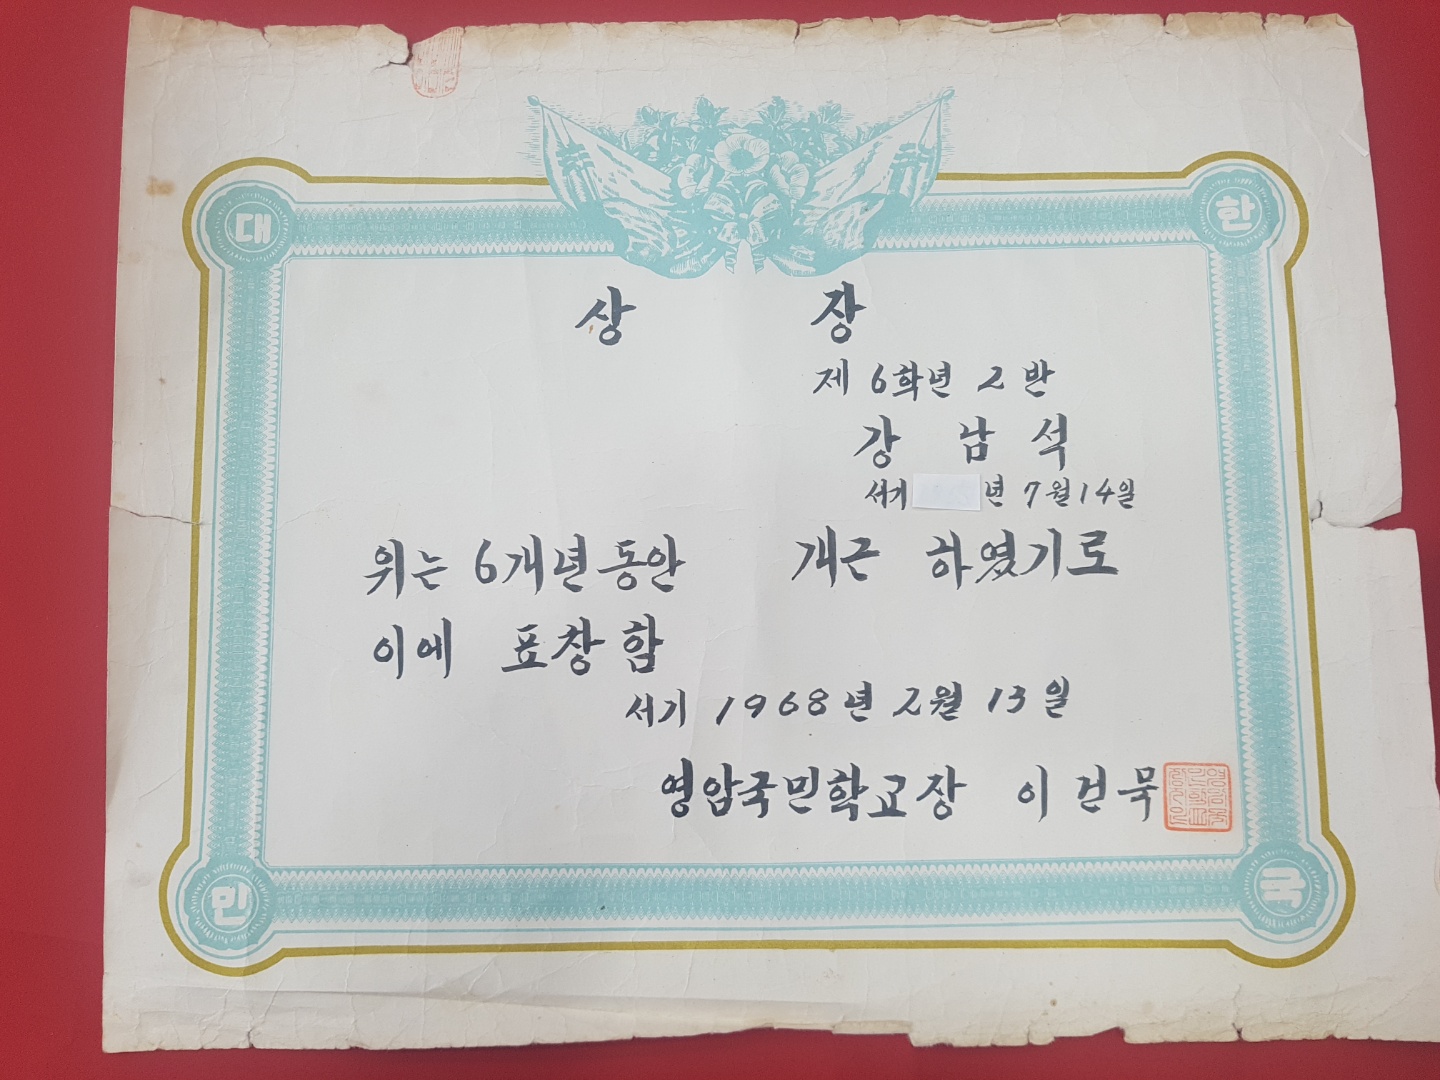 대 한
상 장
제 6학년 2반
강 남 석
서기 년 7월 14일
위는 6개년 동안 개근 하였기로
이에 표창함
서기 1968년 2월 13일
영암국민학교장 이 건 묵
민 국